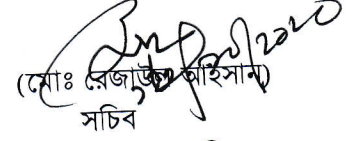 (মোঃ রেজাউল আহসান)
সচিব